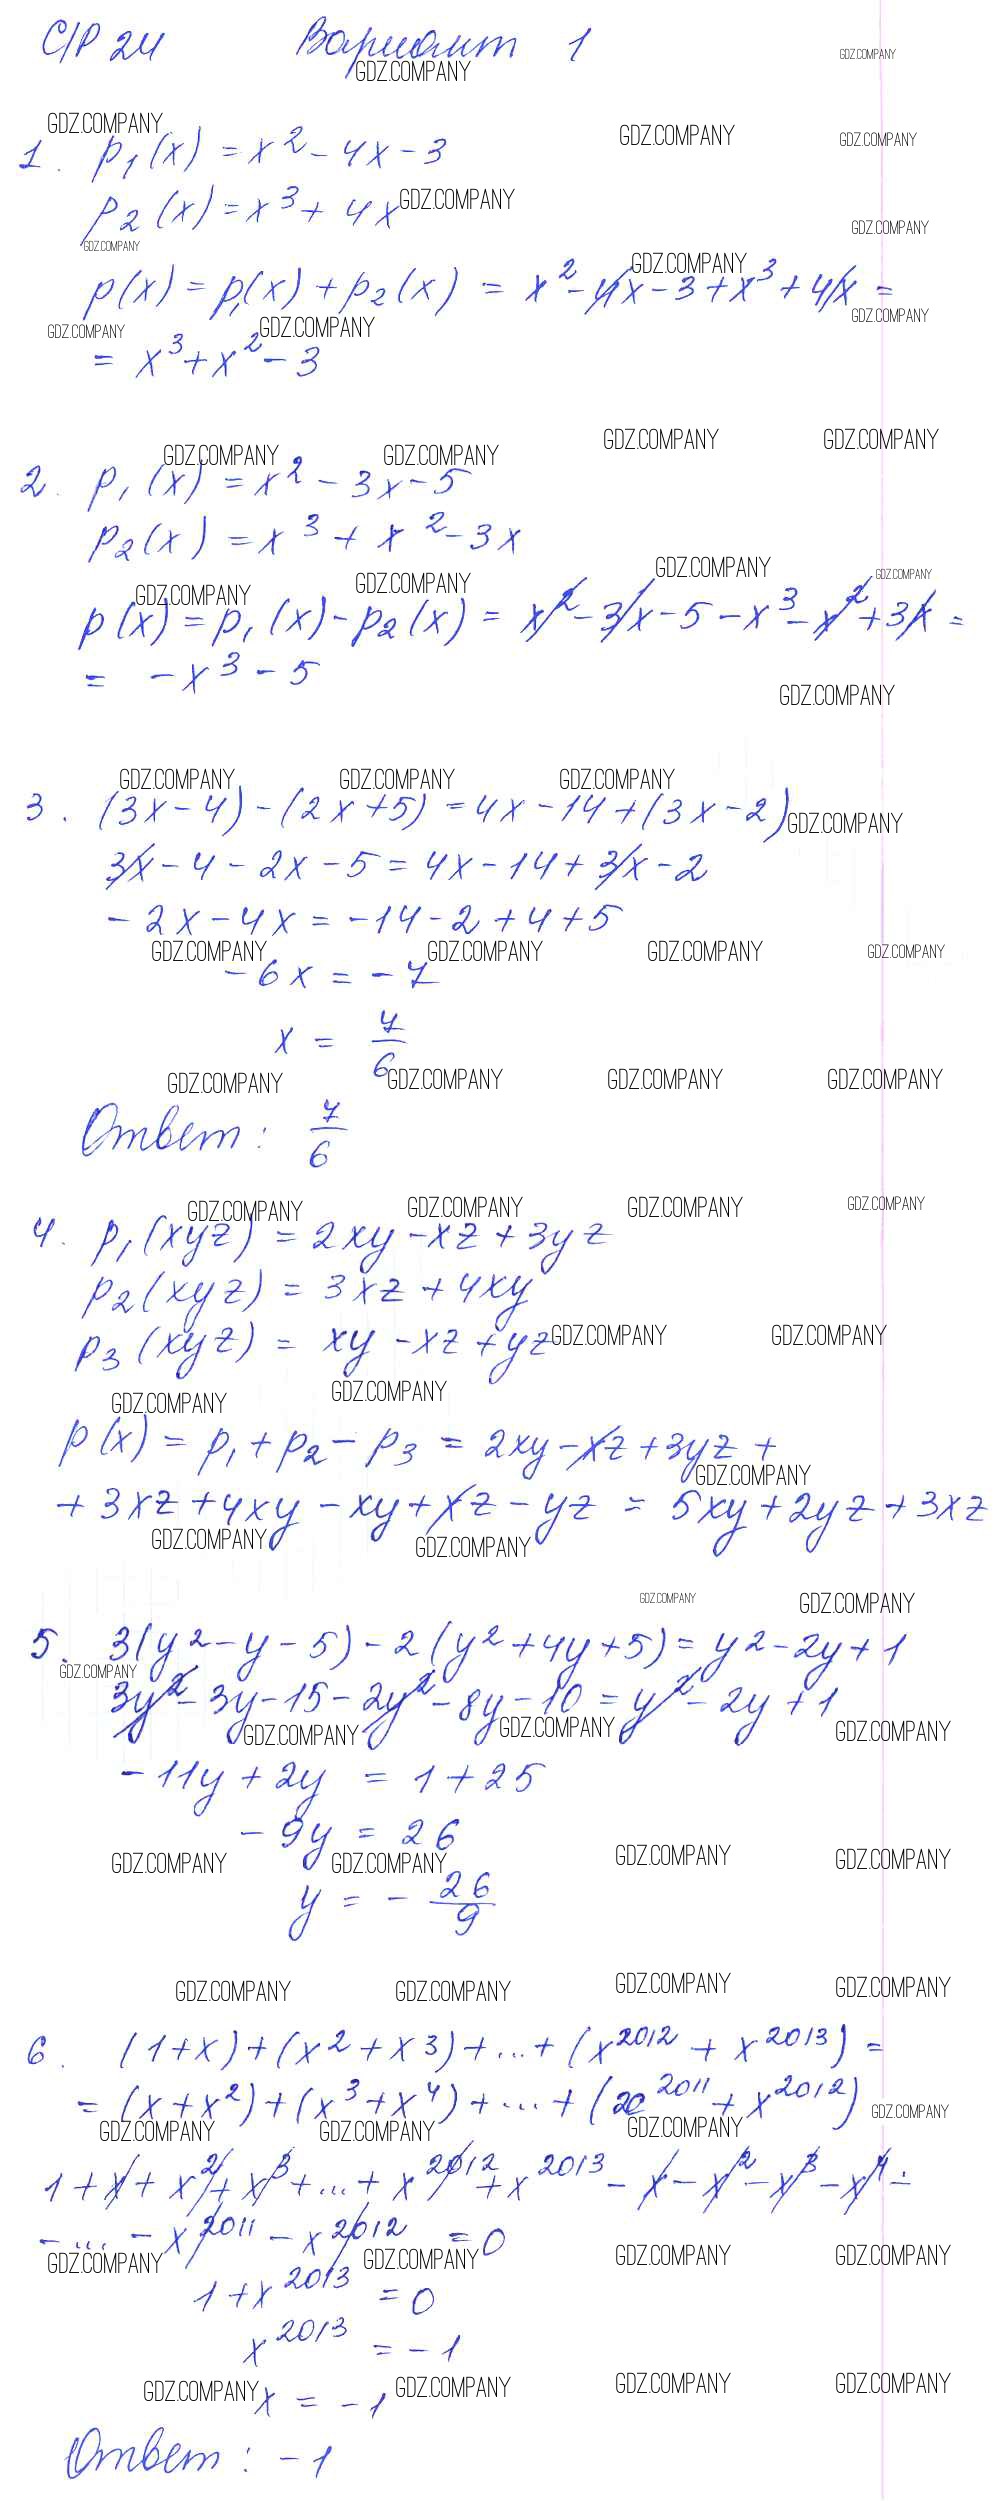 С/Р 24 Вариант 1
1. p₁(x) = x² - 4x - 3
p₂(x) = x³ + 4x
p(x) = p₁(x) + p₂(x) = x² - 4x - 3 + x³ + 4x =
= x³ + x² - 3
2. p₁(x) = x² - 3x - 5
p₂(x) = x³ + x² - 3x
p(x) = p₁(x) - p₂(x) = x² - 3x - 5 - x³ - x² + 3x =
= -x³ - 5
3. (3x - 4) - (2x + 5) = 4x - 14 + (3x - 2)
3x - 4 - 2x - 5 = 4x - 14 + 3x - 2
- 2x - 4x = -14 - 2 + 4 + 5
-6x = -7
x = 7/6
Ответ: 7/6
4. p₁(xyz) = 2xy - xz + 3yz
p₂(xyz) = 3xz + 4xy
p₃(xyz) = xy - xz + yz
p(x) = p₁ + p₂ - p₃ = 2xy - xz + 3yz +
+ 3xz + 4xy - xy + xz - yz = 5xy + 2yz + 3xz
5. 3(y² - y - 5) - 2(y² + 4y + 5) = y² - 2y + 1
3y² - 3y - 15 - 2y² - 8y - 10 = y² - 2y + 1
-11y + 2y = 1 + 25
-9y = 26
y = - 26/9
6. (1 + x) + (x² + x3) + ... + (x²⁰¹² + x²⁰¹³) =
= (x + x²) + (x³ + x⁴) + ... + (x²⁰¹¹ + x²⁰¹²)
1 + x + x² + x³ + ... + x²⁰¹² + x²⁰¹³ - x - x² - x³ - x⁴ -
- ... - x²⁰¹¹ - x²⁰¹² = 0
1 + x²⁰¹³ = 0
x²⁰¹³ = -1
x = -1
Ответ: -1